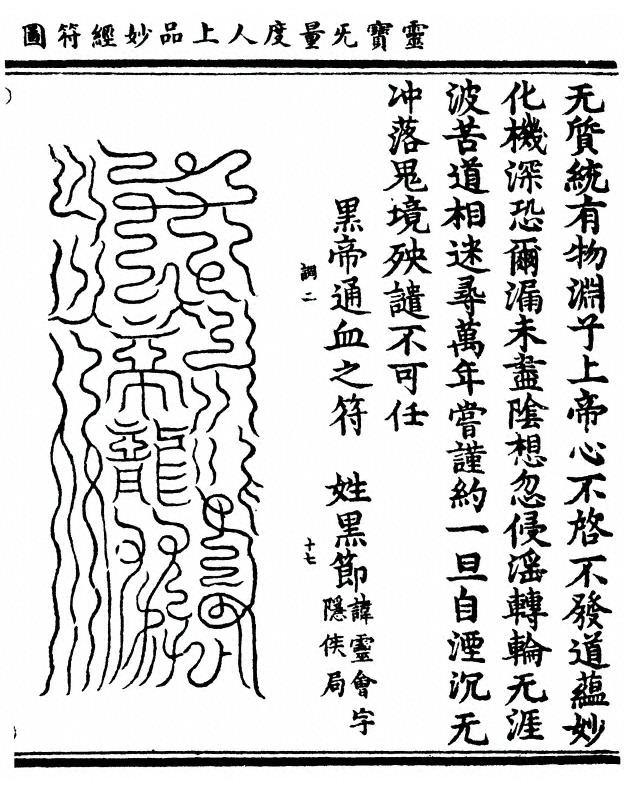 靈寶无量度人上品妙經符圖
无質統有物淵乎上帝心不啓不發道蘊妙
化機深恐爾漏未盡陰想忽侵滛轉輪无涯
波苦道相迷尋萬年嘗謹約一旦自湮沉无
冲落鬼境殃譴不可任
黒帝通血之符 姓黒節諱靈會字
隱侠局
調二
十七